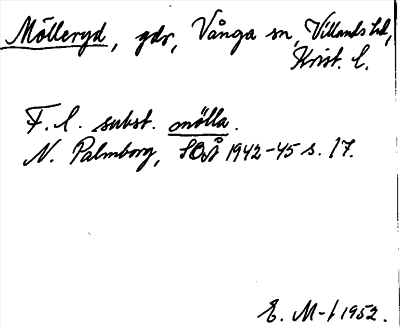 Mölleryd, gdr, Vånga sn, Villands hd,
Krist. l.
F. l. subst. mölla.
N. Palmborg, SOÅ 1942-45 s. 17.
E. M-t 1952.